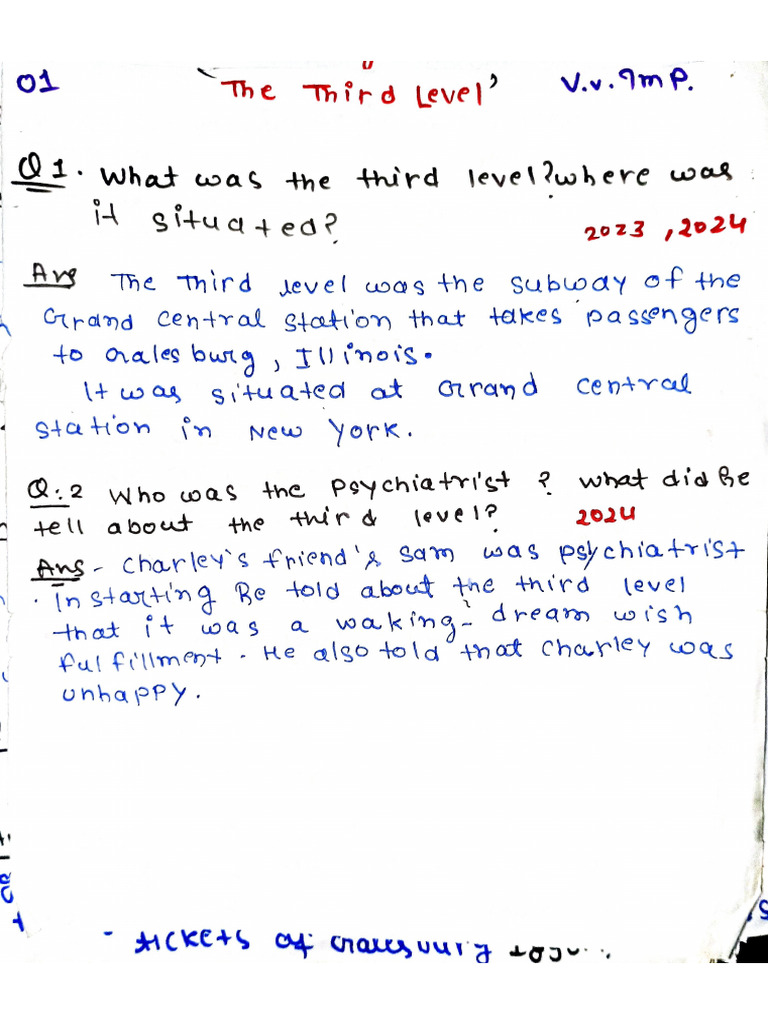 01 "The Third Level" V.v.Imp.
Q1. What was the third level? where was
it situated? 2023, 2024
Ans The Third level was the subway of the
Grand central station that takes passengers
to Galesburg, Illinois.
It was situated at Grand central
station in New York.
Q:2 Who was the psychiatrist? what did he
tell about the third level? 2024
Ans - Charley's friend's Sam was psychiatrist
. In starting he told about the third level
that it was a waking-dream wish
fulfillment. He also told that Charley was
unhappy.
- tickets of Galesburg